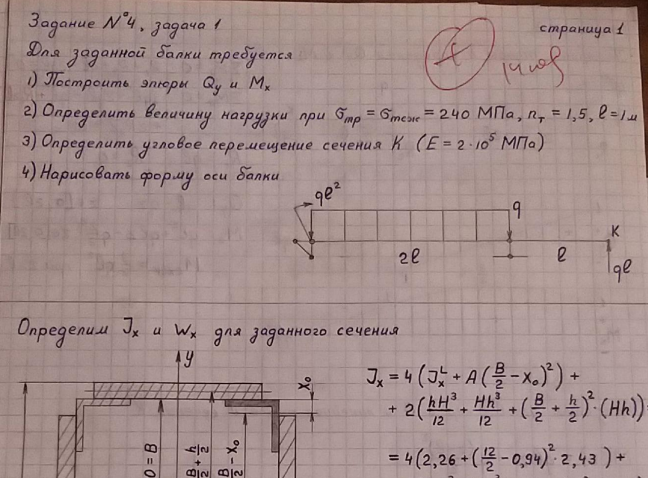 Задание №4, задача 1
страница 1
Для заданной балки требуется
1) Построить эпюры Qy и Mx
2) Определить величину нагрузки при σтр = σтсж = 240 МПа, nт = 1,5, l = 1м
3) Определить угловое перемещение сечения K (E = 2·10⁵ МПа)
4) Нарисовать форму оси балки
ql²
q
K
2l
l
ql
Определим Jx и Wx для заданного сечения
y
x₀
Jx = 4(JxL + A(B/2 - x₀)²) +
+ 2(hH³/12 + Hh³/12 + (B/2 + h/2)²·(Hh))
= 4(2,26 + (12/2 - 0,94)²·2,43) +
0 = B
B/2 + h/2
B/2 - x₀